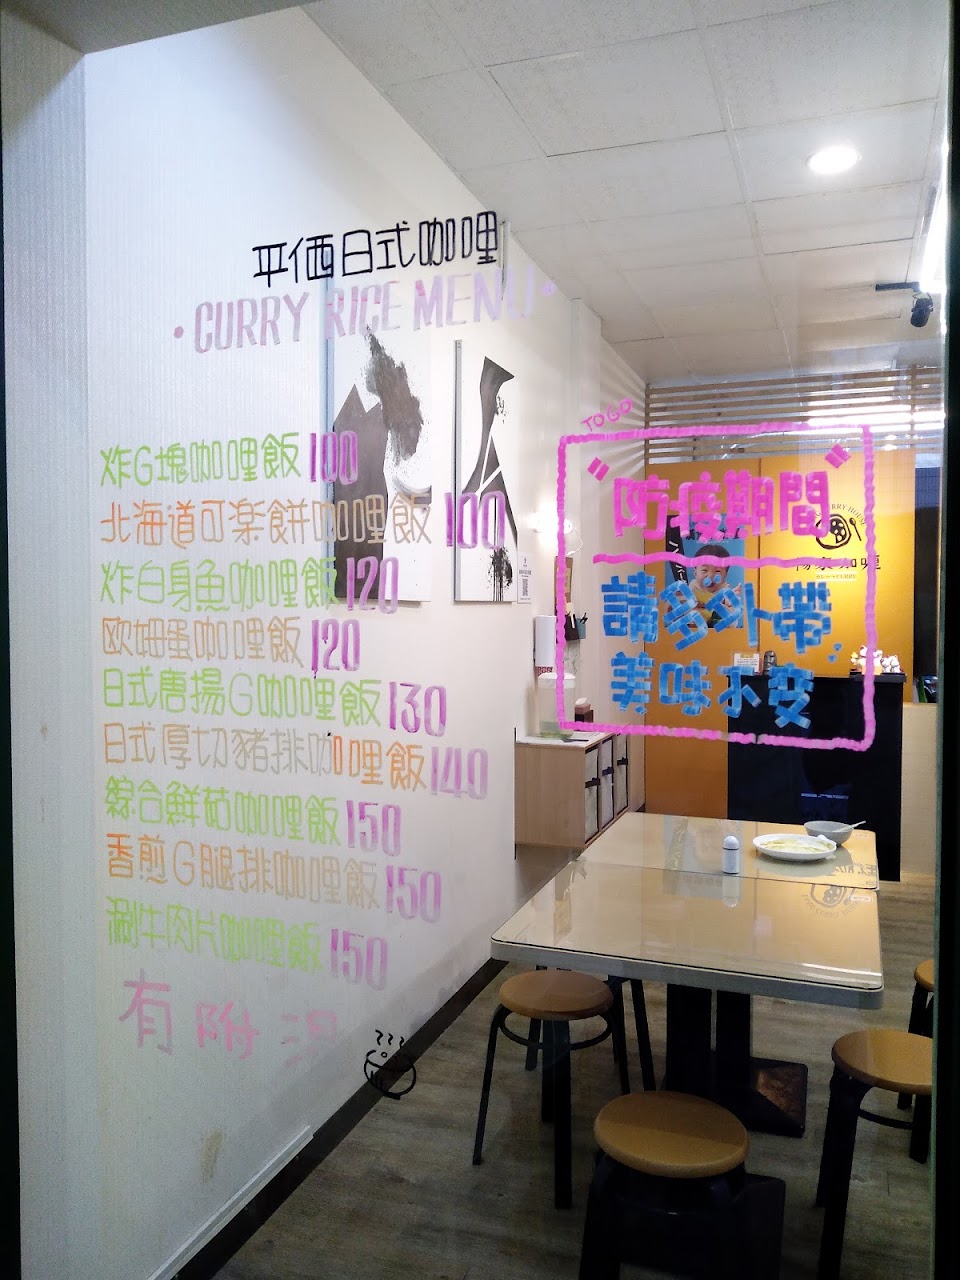 平価日式咖哩
•CURRY RICE MENU•
炸G塊咖哩飯 100
北海道可楽餅咖哩飯 100
炸白身魚咖哩飯 120
欧姆蛋咖哩飯 120
日式唐揚G咖哩飯 130
日式厚切豬排咖哩飯 140
綜合鮮菇咖哩飯 150
香煎G腿排咖哩飯 150
涮牛肉片咖哩飯 150
有附湯
TOGO
"防疫期間"
請多外帶
美味不変
CURRY HOUSE
咖喱